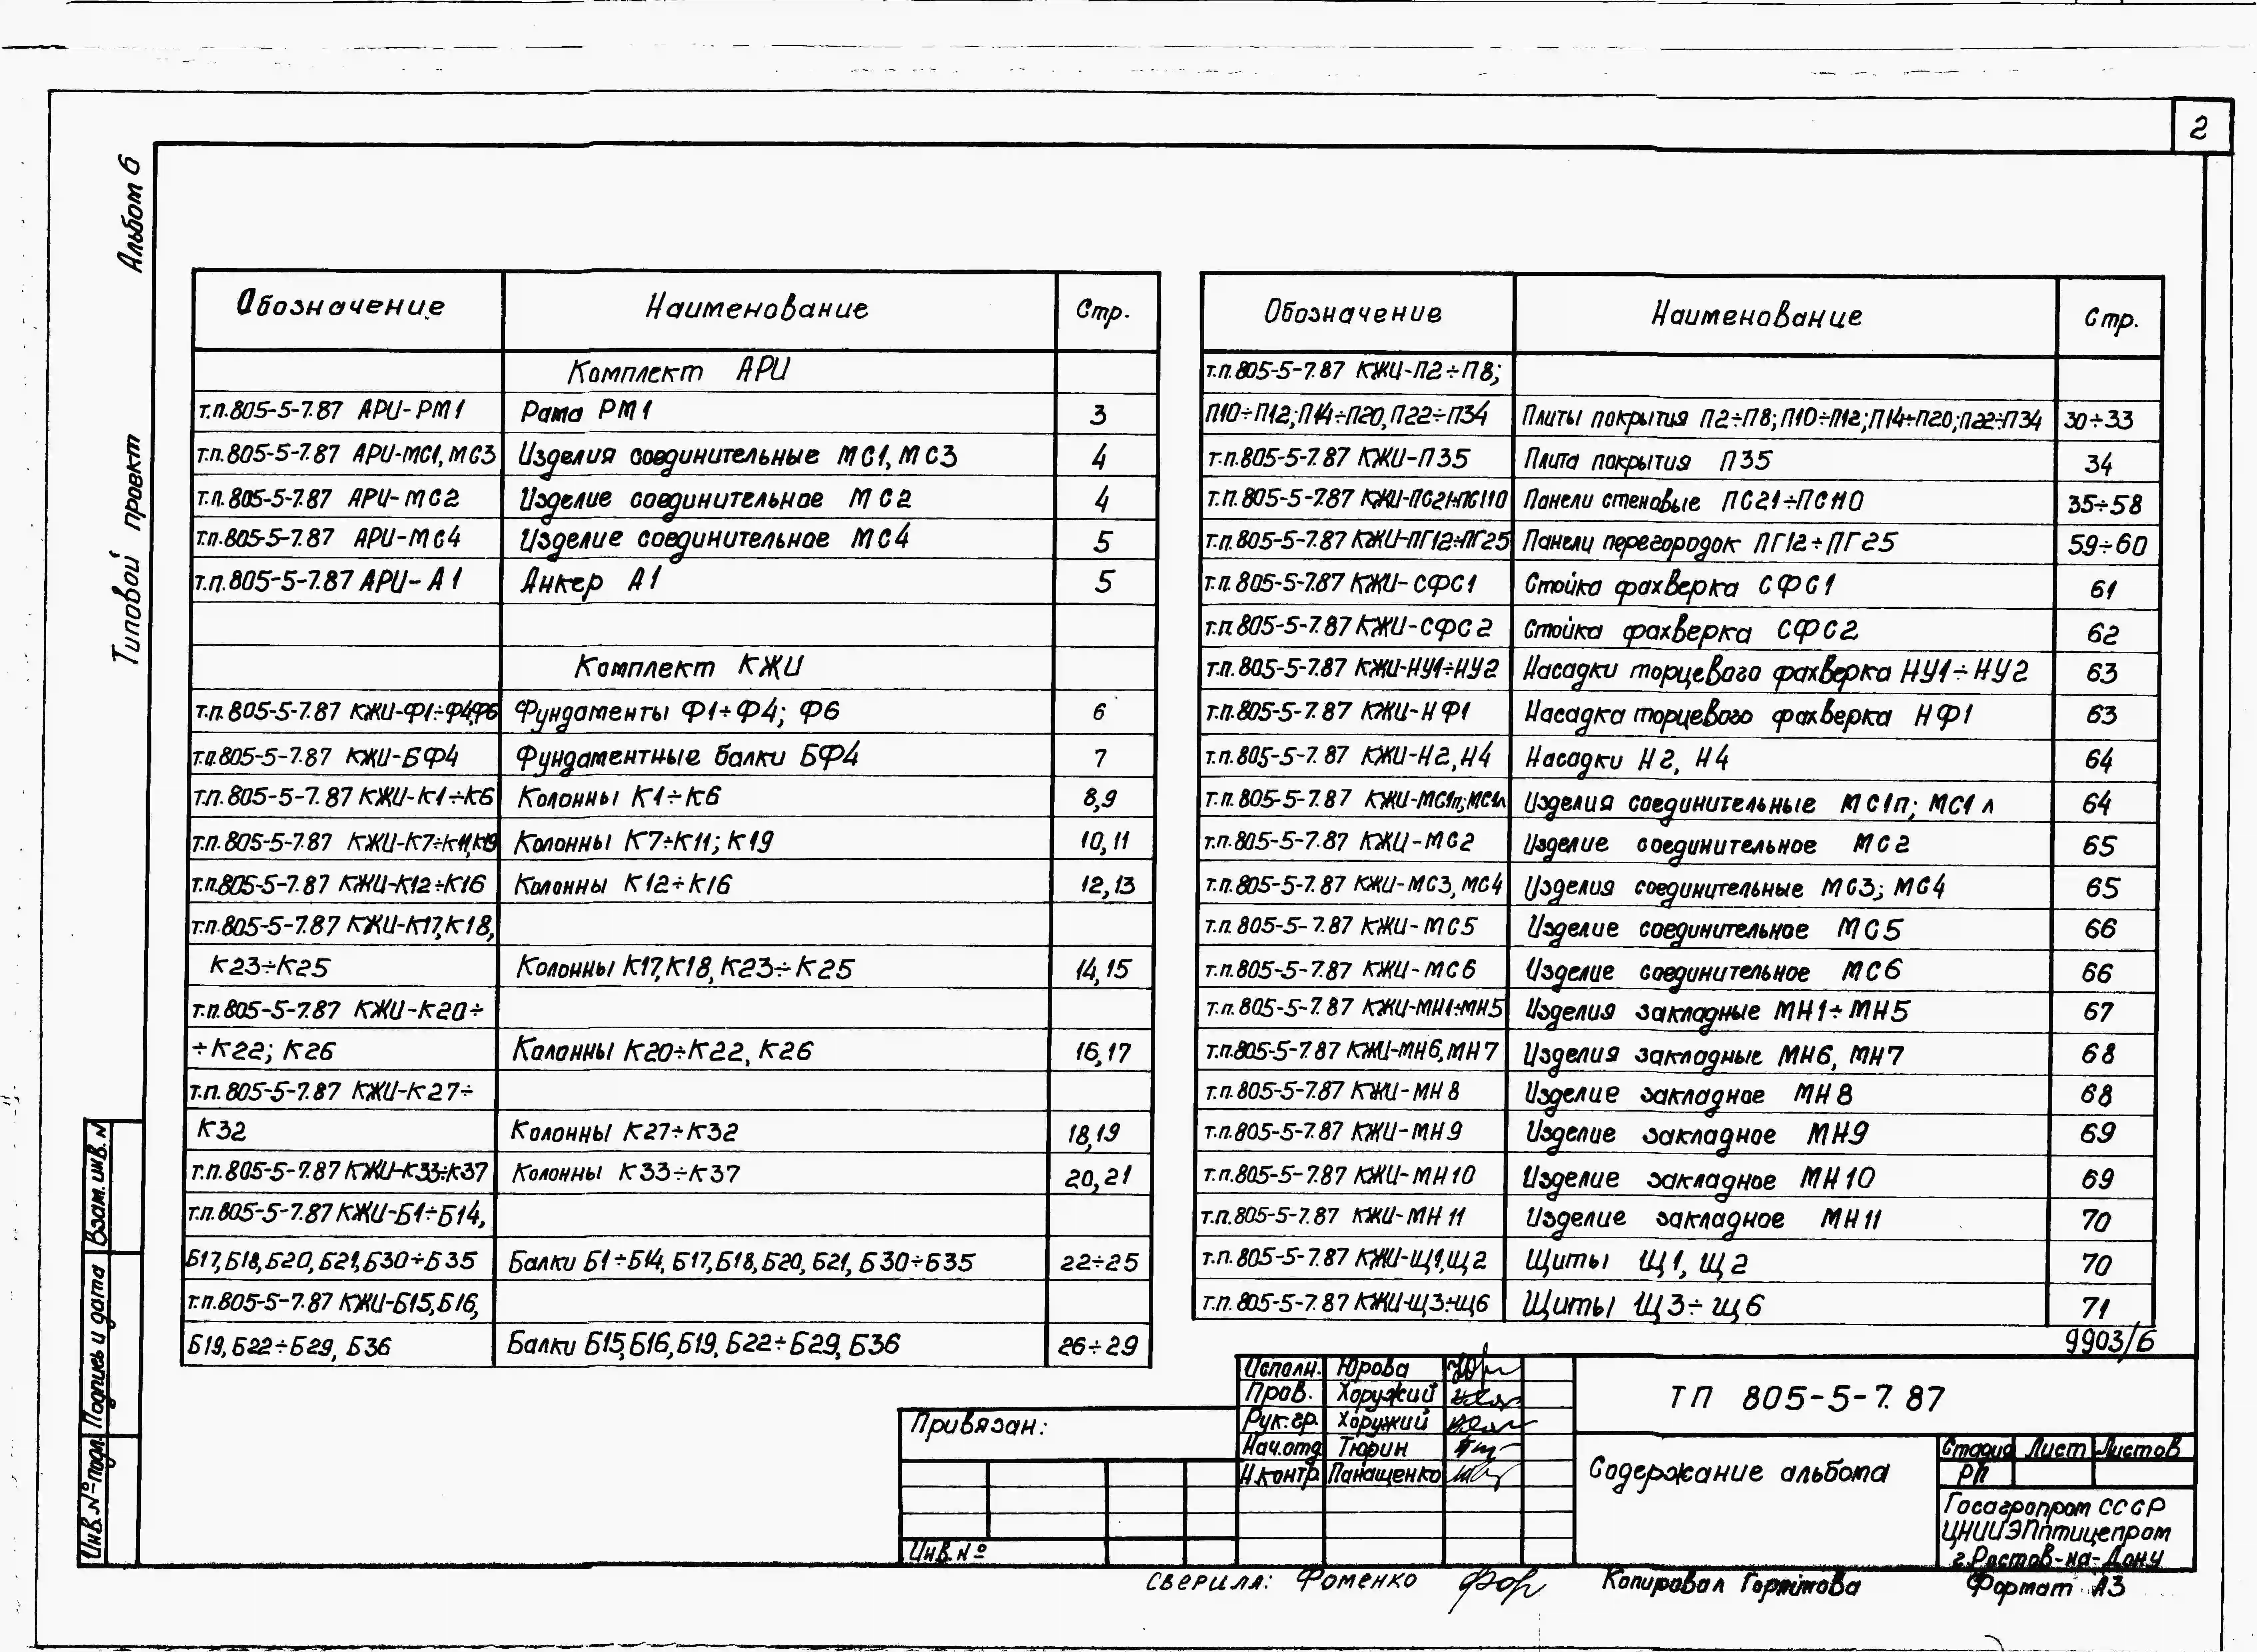 2
Альбом 6
Типовой проект
Обозначение Наименование Стр.
Комплект АРИ
т.п.805-5-7.87 АРИ-РМ1 Рама РМ1 3
т.п.805-5-7.87 АРИ-МС1, МС3 Изделия соединительные МС1, МС3 4
т.п.805-5-7.87 АРИ-МС2 Изделие соединительное МС2 4
т.п.805-5-7.87 АРИ-МС4 Изделие соединительное МС4 5
т.п.805-5-7.87 АРИ-А1 Анкер А1 5
Комплект КЖИ
т.п.805-5-7.87 КЖИ-Ф1÷Ф4,Ф6 Фундаменты Ф1÷Ф4; Ф6 6
т.п.805-5-7.87 КЖИ-БФ4 Фундаментные балки БФ4 7
т.п.805-5-7.87 КЖИ-К1÷К6 Колонны К1÷К6 8,9
т.п.805-5-7.87 КЖИ-К7÷К11,К19 Колонны К7÷К11; К19 10,11
т.п.805-5-7.87 КЖИ-К12÷К16 Колонны К12÷К16 12,13
т.п.805-5-7.87 КЖИ-К17,К18,
К23÷К25 Колонны К17,К18, К23÷К25 14,15
т.п.805-5-7.87 КЖИ-К20÷
÷К22; К26 Колонны К20÷К22, К26 16,17
т.п.805-5-7.87 КЖИ-К27÷
К32 Колонны К27÷К32 18,19
т.п.805-5-7.87 КЖИ-К33÷К37 Колонны К33÷К37 20,21
т.п.805-5-7.87 КЖИ-Б1÷Б14,
Б17,Б18,Б20,Б21,Б30÷Б35 Балки Б1÷Б14, Б17,Б18,Б20, Б21, Б30÷Б35 22÷25
т.п.805-5-7.87 КЖИ-Б15,Б16,
Б19,Б22÷Б29, Б36 Балки Б15,Б16,Б19, Б22÷Б29, Б36 26÷29
Обозначение Наименование Стр.
т.п.805-5-7.87 КЖИ-П2÷П8;
П10÷П12;П14÷П20,П22÷П34 Плиты покрытия П2÷П8; П10÷П12; П14÷П20; П22÷П34 30÷33
т.п.805-5-7.87 КЖИ-П35 Плита покрытия П35 34
т.п.805-5-7.87 КЖИ-ПС21÷ПС110 Панели стеновые ПС21÷ПС110 35÷58
т.п.805-5-7.87 КЖИ-ПГ12÷ПГ25 Панели перегородок ПГ12÷ПГ25 59÷60
т.п.805-5-7.87 КЖИ-СФС1 Стойка фахверка СФС1 61
т.п.805-5-7.87 КЖИ-СФС2 Стойка фахверка СФС2 62
т.п.805-5-7.87 КЖИ-НУ1÷НУ2 Насадки торцевого фахверка НУ1÷НУ2 63
т.п.805-5-7.87 КЖИ-НФ1 Насадка торцевого фахверка НФ1 63
т.п.805-5-7.87 КЖИ-Н2,Н4 Насадки Н2, Н4 64
т.п.805-5-7.87 КЖИ-МС1п;МС1л Изделия соединительные МС1п; МС1л 64
т.п.805-5-7.87 КЖИ-МС2 Изделие соединительное МС2 65
т.п.805-5-7.87 КЖИ-МС3, МС4 Изделия соединительные МС3; МС4 65
т.п.805-5-7.87 КЖИ-МС5 Изделие соединительное МС5 66
т.п.805-5-7.87 КЖИ-МС6 Изделие соединительное МС6 66
т.п.805-5-7.87 КЖИ-МН1÷МН5 Изделия закладные МН1÷МН5 67
т.п.805-5-7.87 КЖИ-МН6,МН7 Изделия закладные МН6, МН7 68
т.п.805-5-7.87 КЖИ-МН8 Изделие закладное МН8 68
т.п.805-5-7.87 КЖИ-МН9 Изделие закладное МН9 69
т.п.805-5-7.87 КЖИ-МН10 Изделие закладное МН10 69
т.п.805-5-7.87 КЖИ-МН11 Изделие закладное МН11 70
т.п.805-5-7.87 КЖИ-Щ1,Щ2 Щиты Щ1, Щ2 70
т.п.805-5-7.87 КЖИ-Щ3÷Щ6 Щиты Щ3÷Щ6 71
9903/6
Взам.инв.N
Подпись и дата
Инв.№подл.
Привязан:
Инв.№
Исполн. Юрова
Пров. Хоружий
Рук.гр. Хоружий
Нач.отд Тюрин
Н.контр. Панащенко
ТП 805-5-7.87
Содержание альбома
Стадия Лист Листов
РП
Госагропром СССР
ЦНИИЭПптицепром
г.Ростов-на-Дону
сверила: Фоменко
Копировал
Формат А3